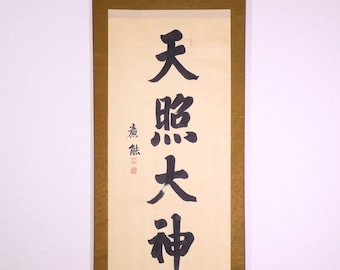 天照大神